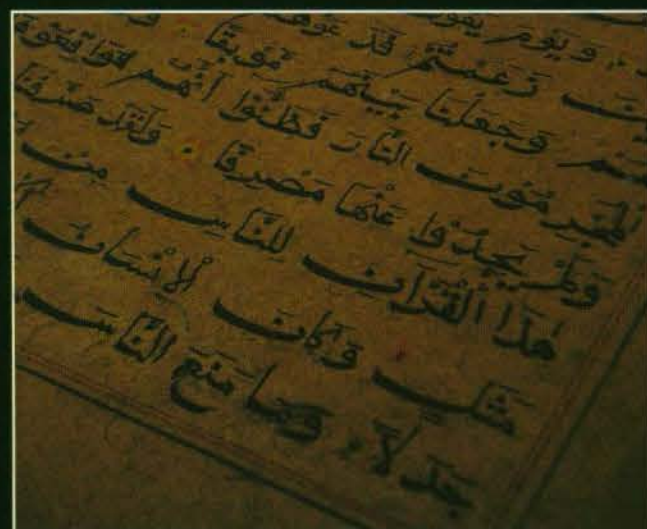 وَيَوْمَ يَقُو
زَعَمْتُمْ فَدَعَوْهُ
وَجَعَلْنَا بَيْنَهُمْ مَوْبِقًا
الْمُجْرِمُونَ النَّارَ فَظَنُّوا أَنَّهُمْ مُوَاقِعُوهَ
وَلَمْ يَجِدُوا عَنْهَا مَصْرِفًا وَلَقَدْ صَرَّفْنَا
هَذَا الْقُرْآنِ لِلنَّاسِ مِنْ
مَثَلٍ وَكَانَ الْإِنْسَانُ
جَدَلًا وَمَا مَنَعَ النَّاسَ